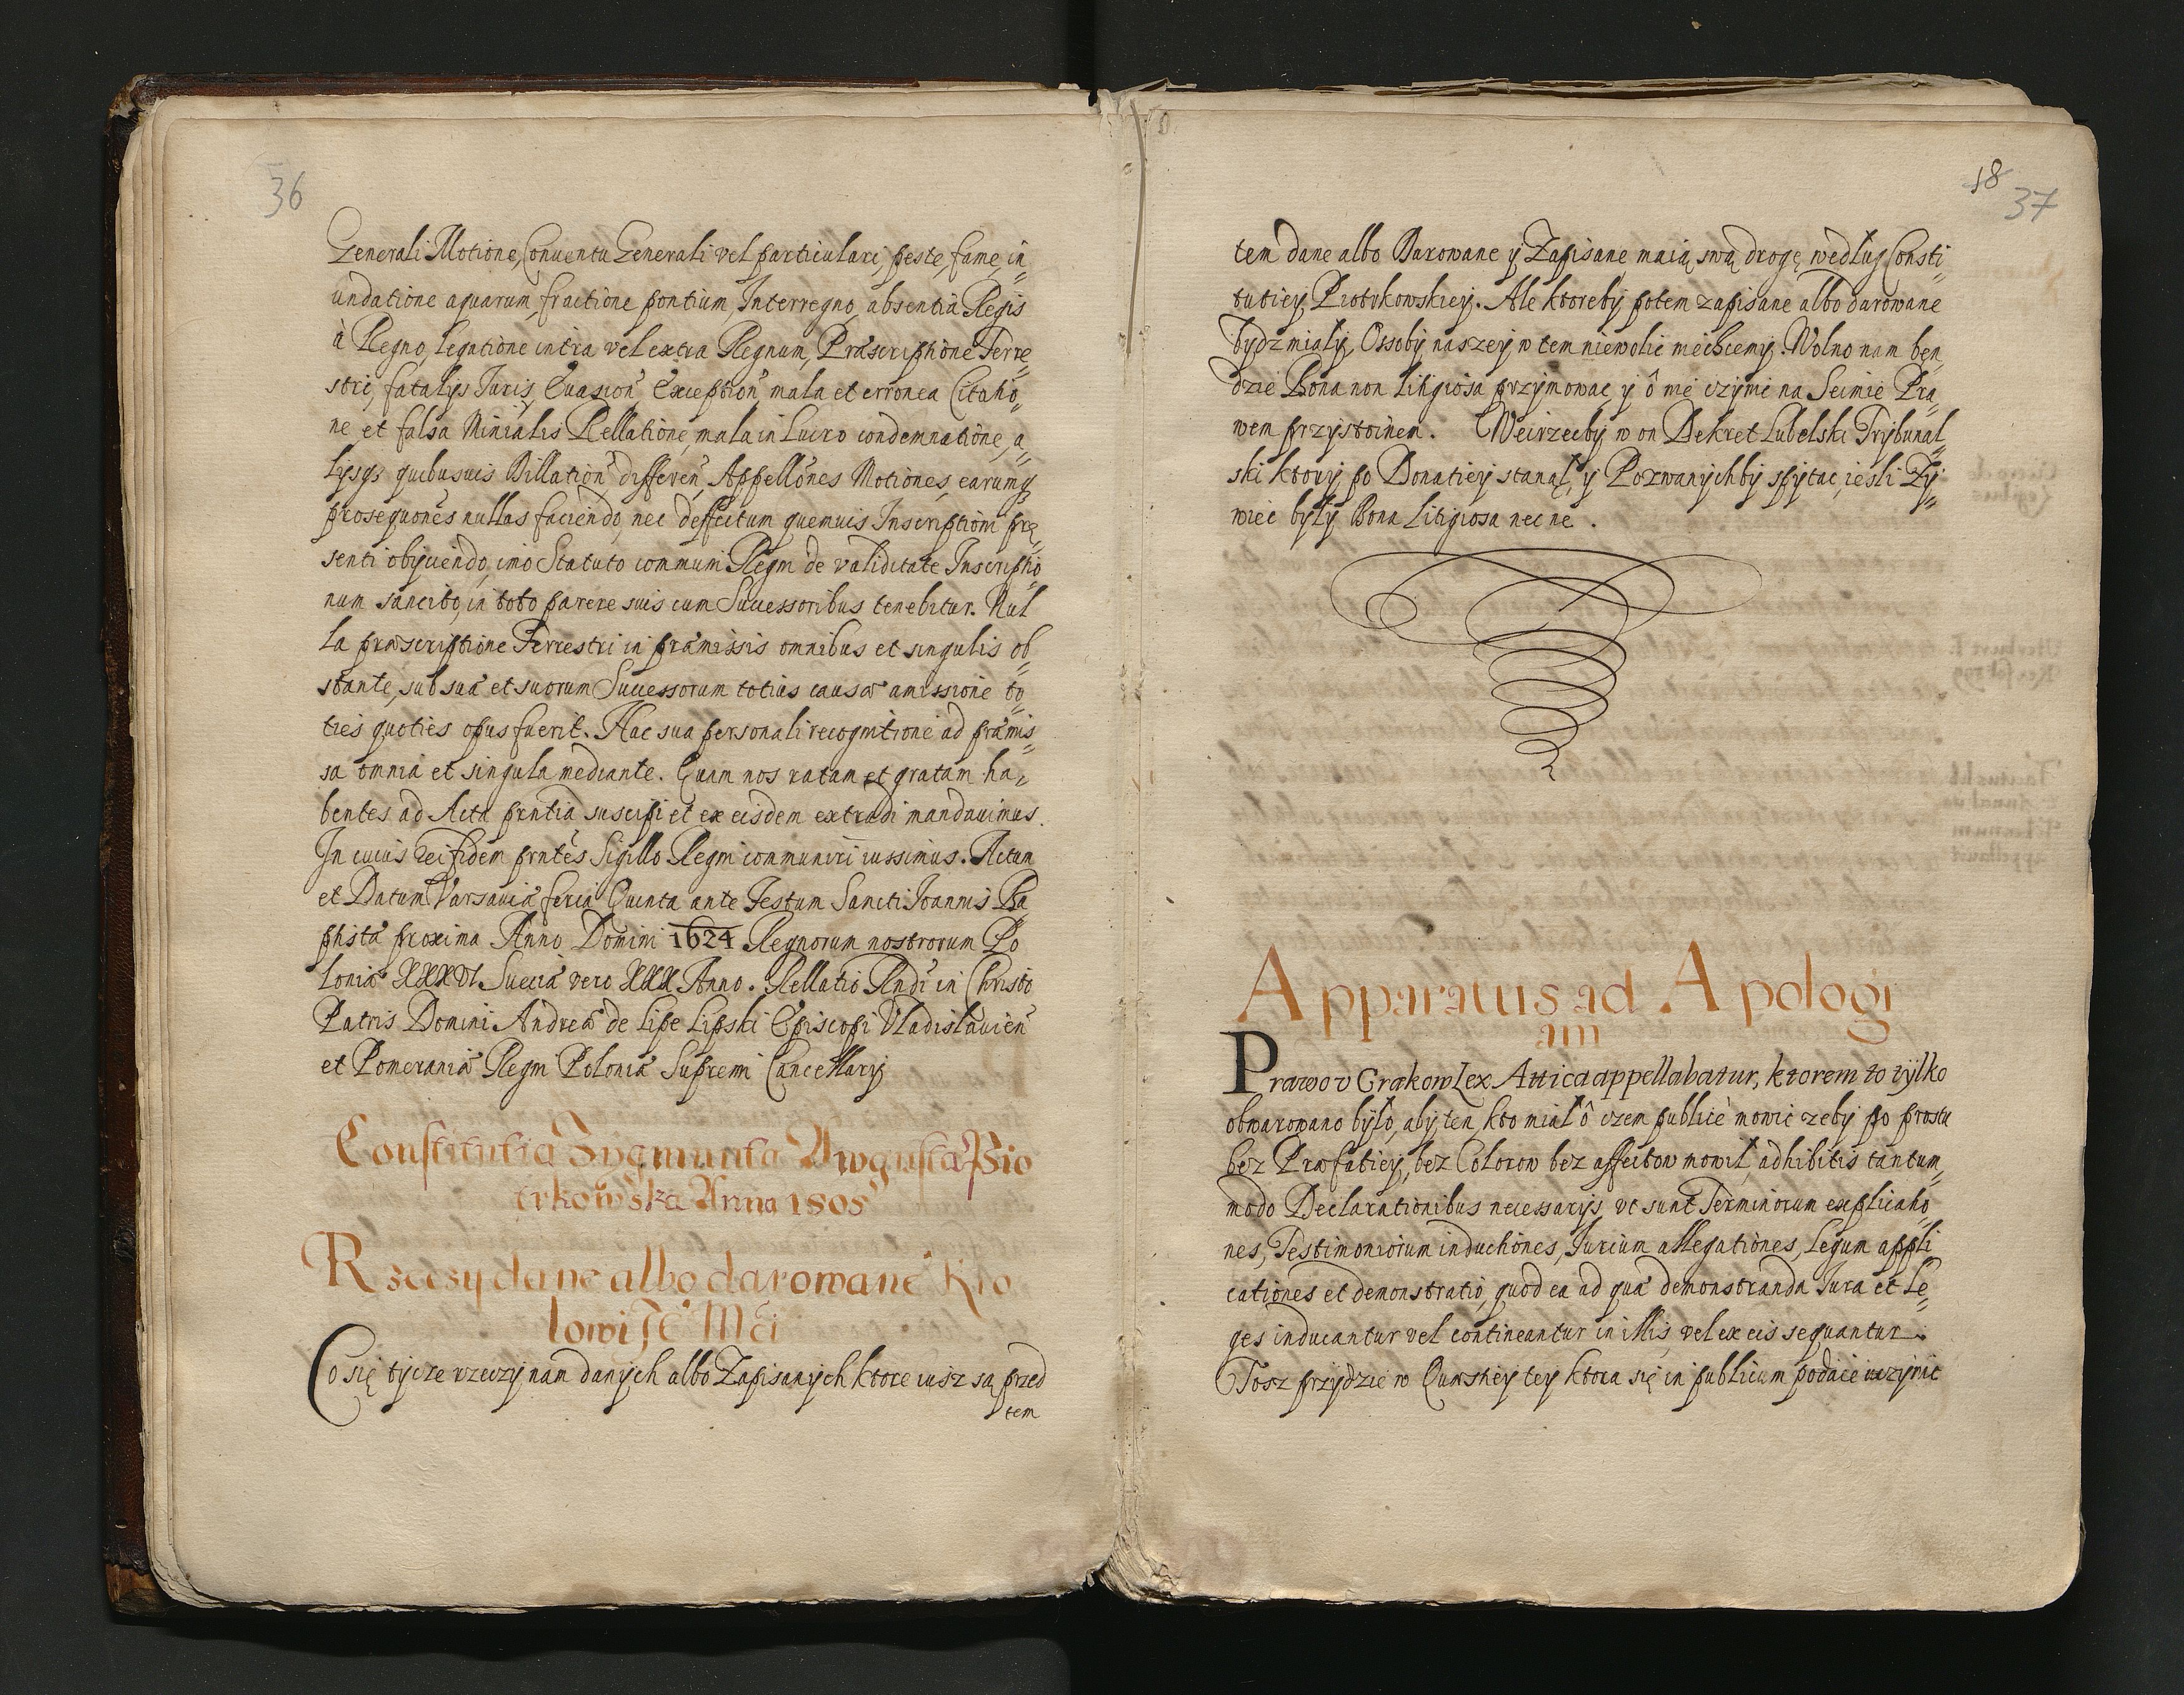 36
Generali Motione, Conventu Generali vel particulari, peste, fame, in=
undatione aquarum, fractione pontium, Interregno, absentia Regis
à Regno, legatione intra vel extra Regnum, Præscriptione Terre=
stri, fatalys Juris, Evasion, Exception, mala et erronea Citatio=
ne et falsa Minialis Rellatione, mala in Lucro condemnatione, a=
lysqz quibusuis Dillation differen, Appellones Motiones, earumq
prosequones nullas faciendo, nec deffectum quemuis Inscriptioni præ=
senti obijciendo, imo Statuto communi Regni de validitate Inscriptio
num sancito, in toto parere suis cum Successoribus tenebitur. Nul
la præscriptione Terrestri in præmissis omnibus et singulis ob=
stante, sub sua et suorum Successorum totius causæ amissione to=
ties quoties opus fuerit. Hac sua personali recognitione ad præmis=
sa omnia et singula mediante. Quam nos ratam et gratam ha=
bentes ad Acta prntia suscipi et ex eisdem extradi mandavimus.
In cuius rei fidem prntes Sigillo Regni communiri iussimus. Actum
et Datum Varsaviæ feria Quinta ante Festum Sancti Joannis Ba
ptistæ proxima Anno Domini 1624 Regnorum nostrorum Po
loniæ XXXVI. Sueciæ vero XXX Anno. Rellatio Rndi in Christo
Patris Domini Andreæ de Lipe Lipski Episcopi Vladislavien
et Pomeraniæ Regni Poloniæ Supremi Cancellary
Constitutia Zygmunta Awgusta Pio
trkowska Anna 1808
Rzeczy dane albo darowane Kro
lowi Je Mci
Co się tycze rzeczy nam danych albo Zapisanych ktore iusz są przed
tem
18
37
tem dane albo Darowane y Zapisane maią swą drogę według Consti=
tutiey Piotrkowskiey. Ale ktoreby potem zapisane albo darowane
bydz miały, Ossoby naszey w tem niewolic niechcemy. Wolno nam ben
dzie Bona non Litigiosa przymowac, y ô nie czynic na Seimie Pra=
wem przystoinem. Weirzecby w on Dekret Lubelski Trybunal
ski ktory po Donatiey stanął, y Pozwanychby spytac, iesli Zy=
wiec były Bona Litigiosa nec ne.
Apparatus ad Apologi
am
Prawo v Grækow Lex Attica appellabatur, ktorem to tylko
obwarowano było, aby ten, kto miał ô czem publicè mowic zeby po prostu
bez Præfatiey, bez Colorow bez affectow mowił, adhibitis tantum=
modo Declarationibus necessarys, vt sunt Terminorum explicatio=
nes, Testimoniorum inductiones, Jurium allegationes, Legum appli
cationes et demonstratio, quod ea ad quæ demonstranda Jura et Le=
ges inducantur vel contineantur in illis, vel ex eis sequantur.
Tosz przydzie w Qurstiey tey ktora się in publicum podaie uczynic